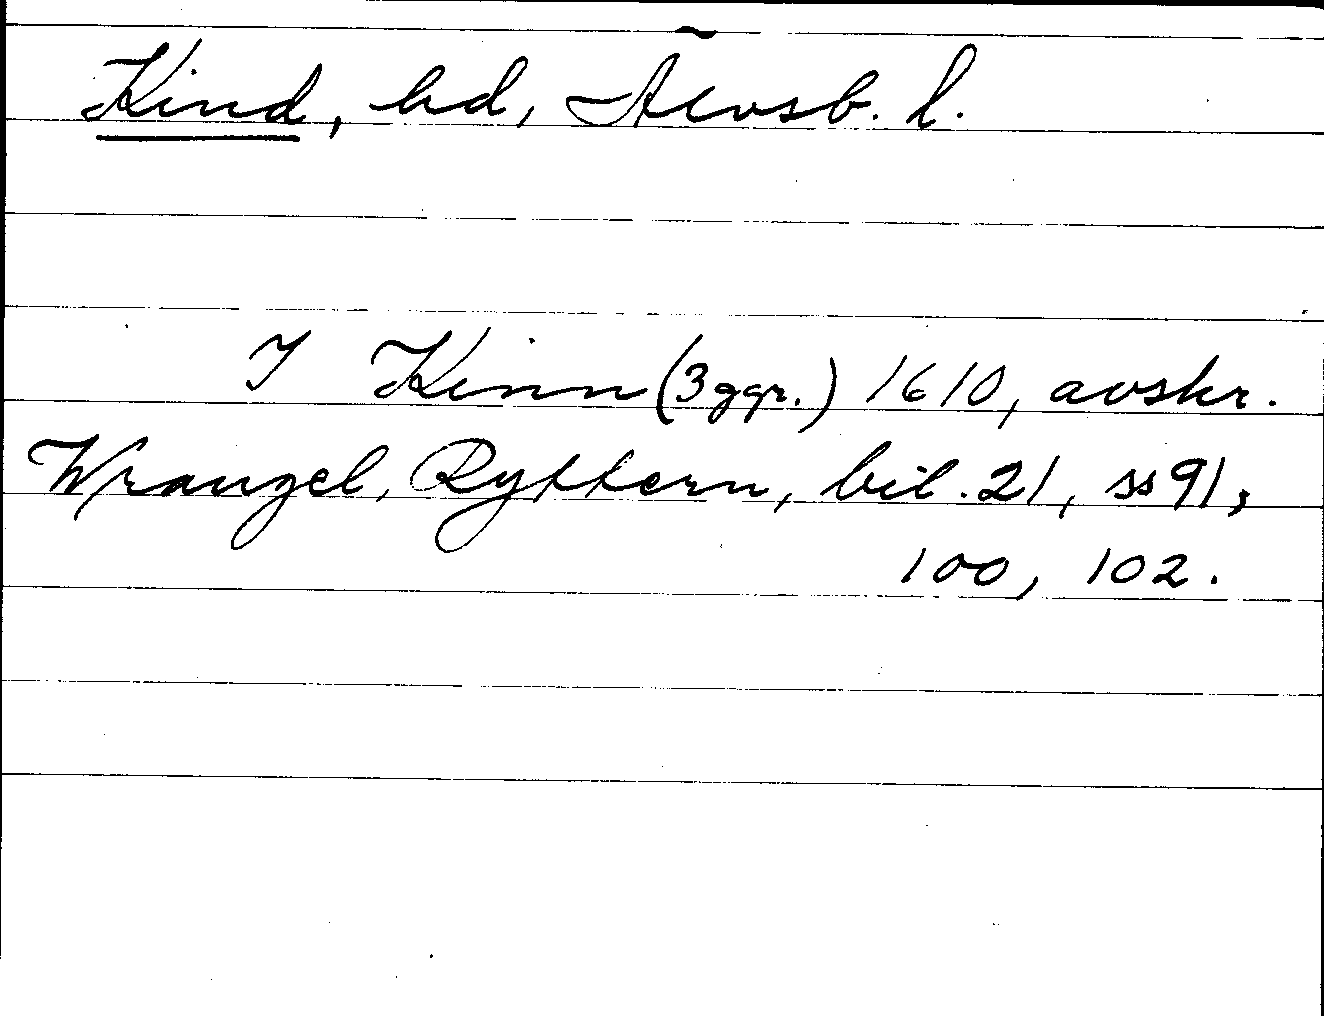 Kind, hd, Älvsb. l.
I Kinn (3 ggr.) 1610, avskr.
Wrangel, Ryttern, bil. 21, ss 91,
100, 102.